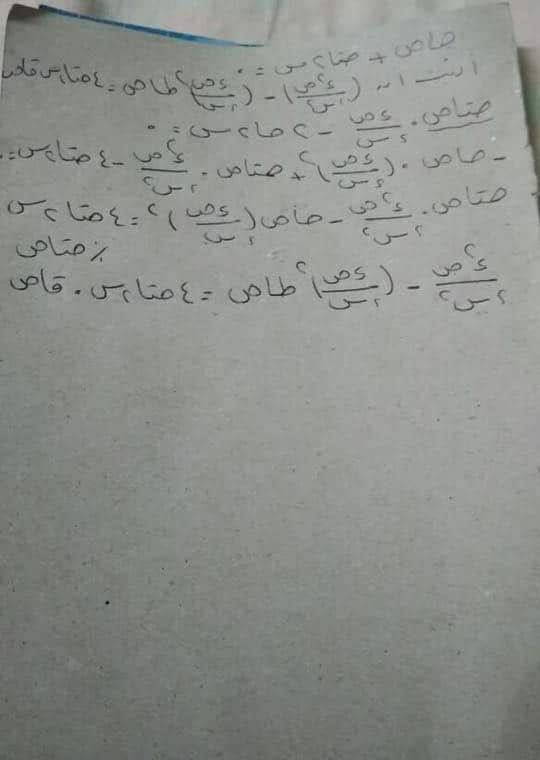 حاص + حتا٢س = ٠
أثبت أن (د٢ص/دس٢) - (دص/دس)٢ طاص = ٤حتا٢س قاص
حتاص . دص/دس - ٢حا٢س = ٠
- حاص . (دص/دس)٢ + حتاص . د٢ص/دس٢ - ٤حتا٢س = ٠
حتاص . د٢ص/دس٢ - حاص (دص/دس)٢ = ٤حتا٢س
٪ حتاص
د٢ص/دس٢ - (دص/دس)٢ طاص = ٤حتا٢س . قاص